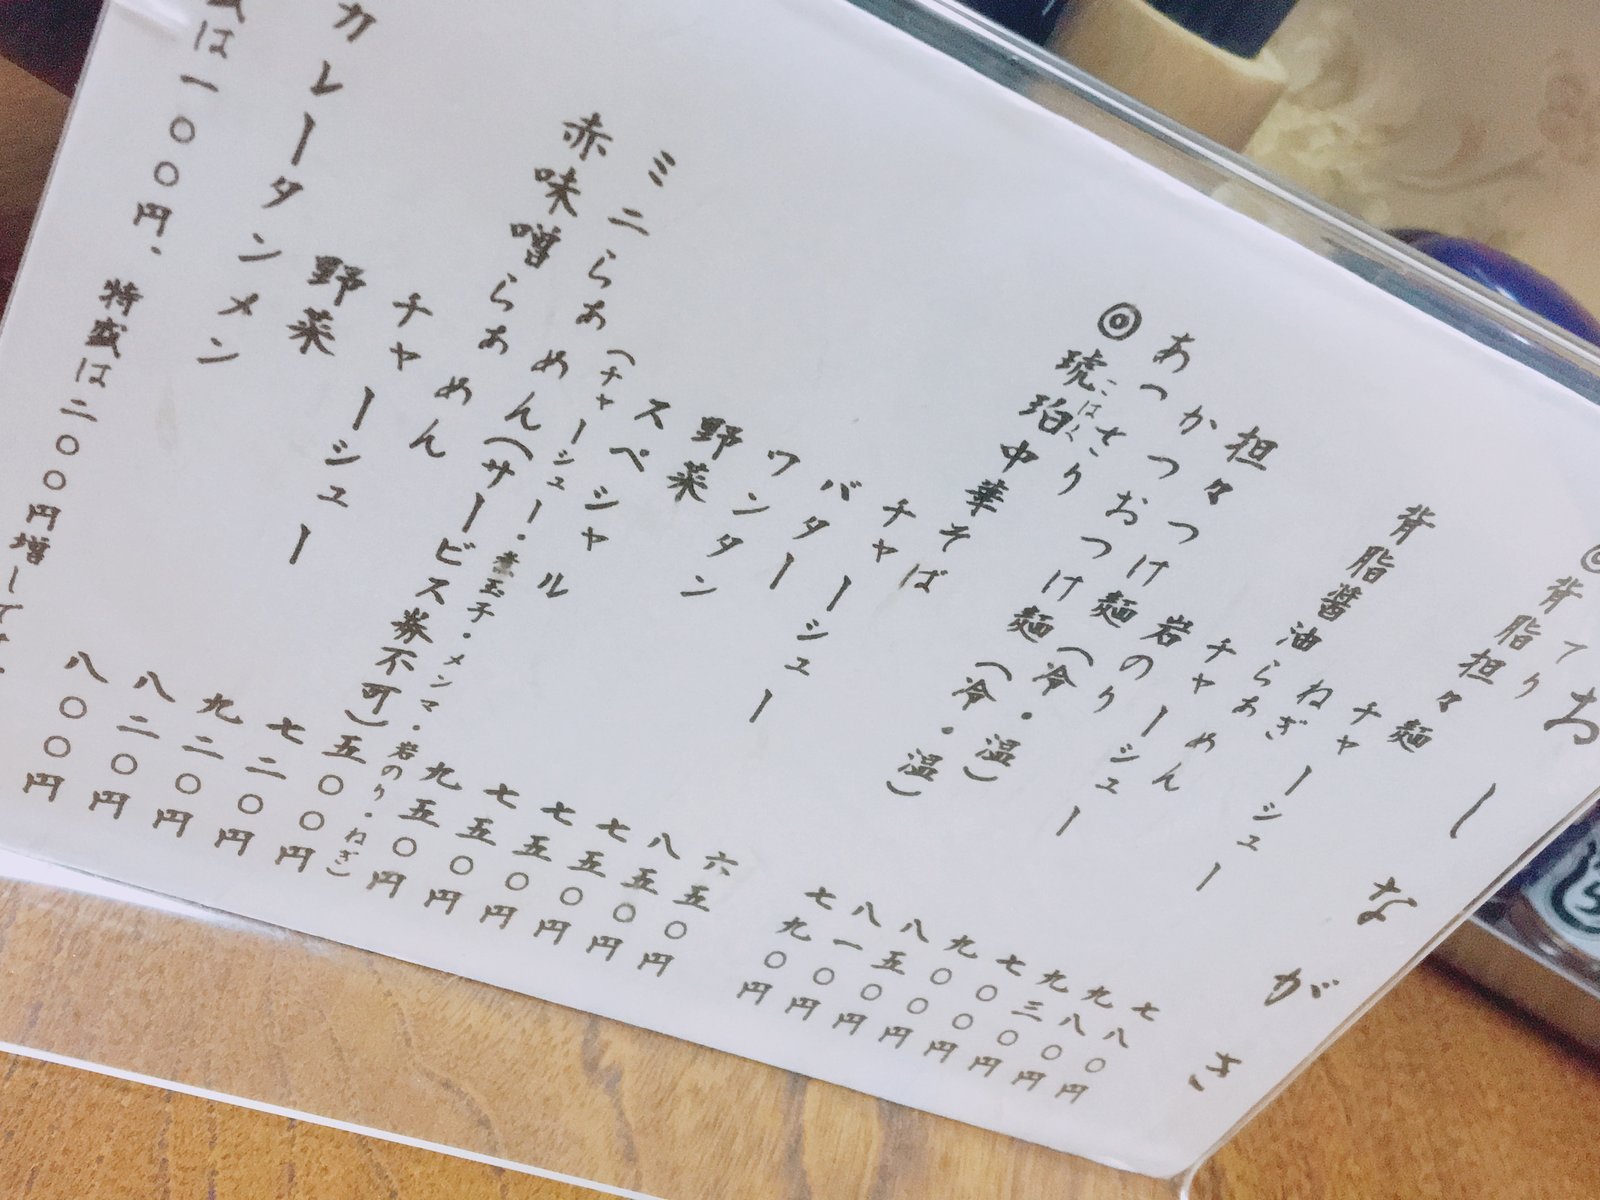 おしながき
てり
◎背脂担々麺 七八〇円
チャーシュー 九八〇円
ねぎ 九三〇円
背脂醤油らぁめん 七〇〇円
チャーシュー 九〇〇円
岩のり 八五〇円
担々つけ麺(冷・温) 八一〇円
かつおつけ麺(冷・温) 七九〇円
あっさり
こはく
◎琥珀中華そば 六五〇円
チャーシュー 八五〇円
バター 七五〇円
ワンタン 七五〇円
野菜 七五〇円
スペシャル 九五〇円
(チャーシュー・煮玉子・メンマ・岩のり・ねぎ)
ミニらぁめん(サービス券不可) 五〇〇円
赤味噌らぁめん 七二〇円
チャーシュー 九二〇円
野菜 八二〇円
カレータンメン 八〇〇円
盛は一〇〇円、特盛は二〇〇円増しです。